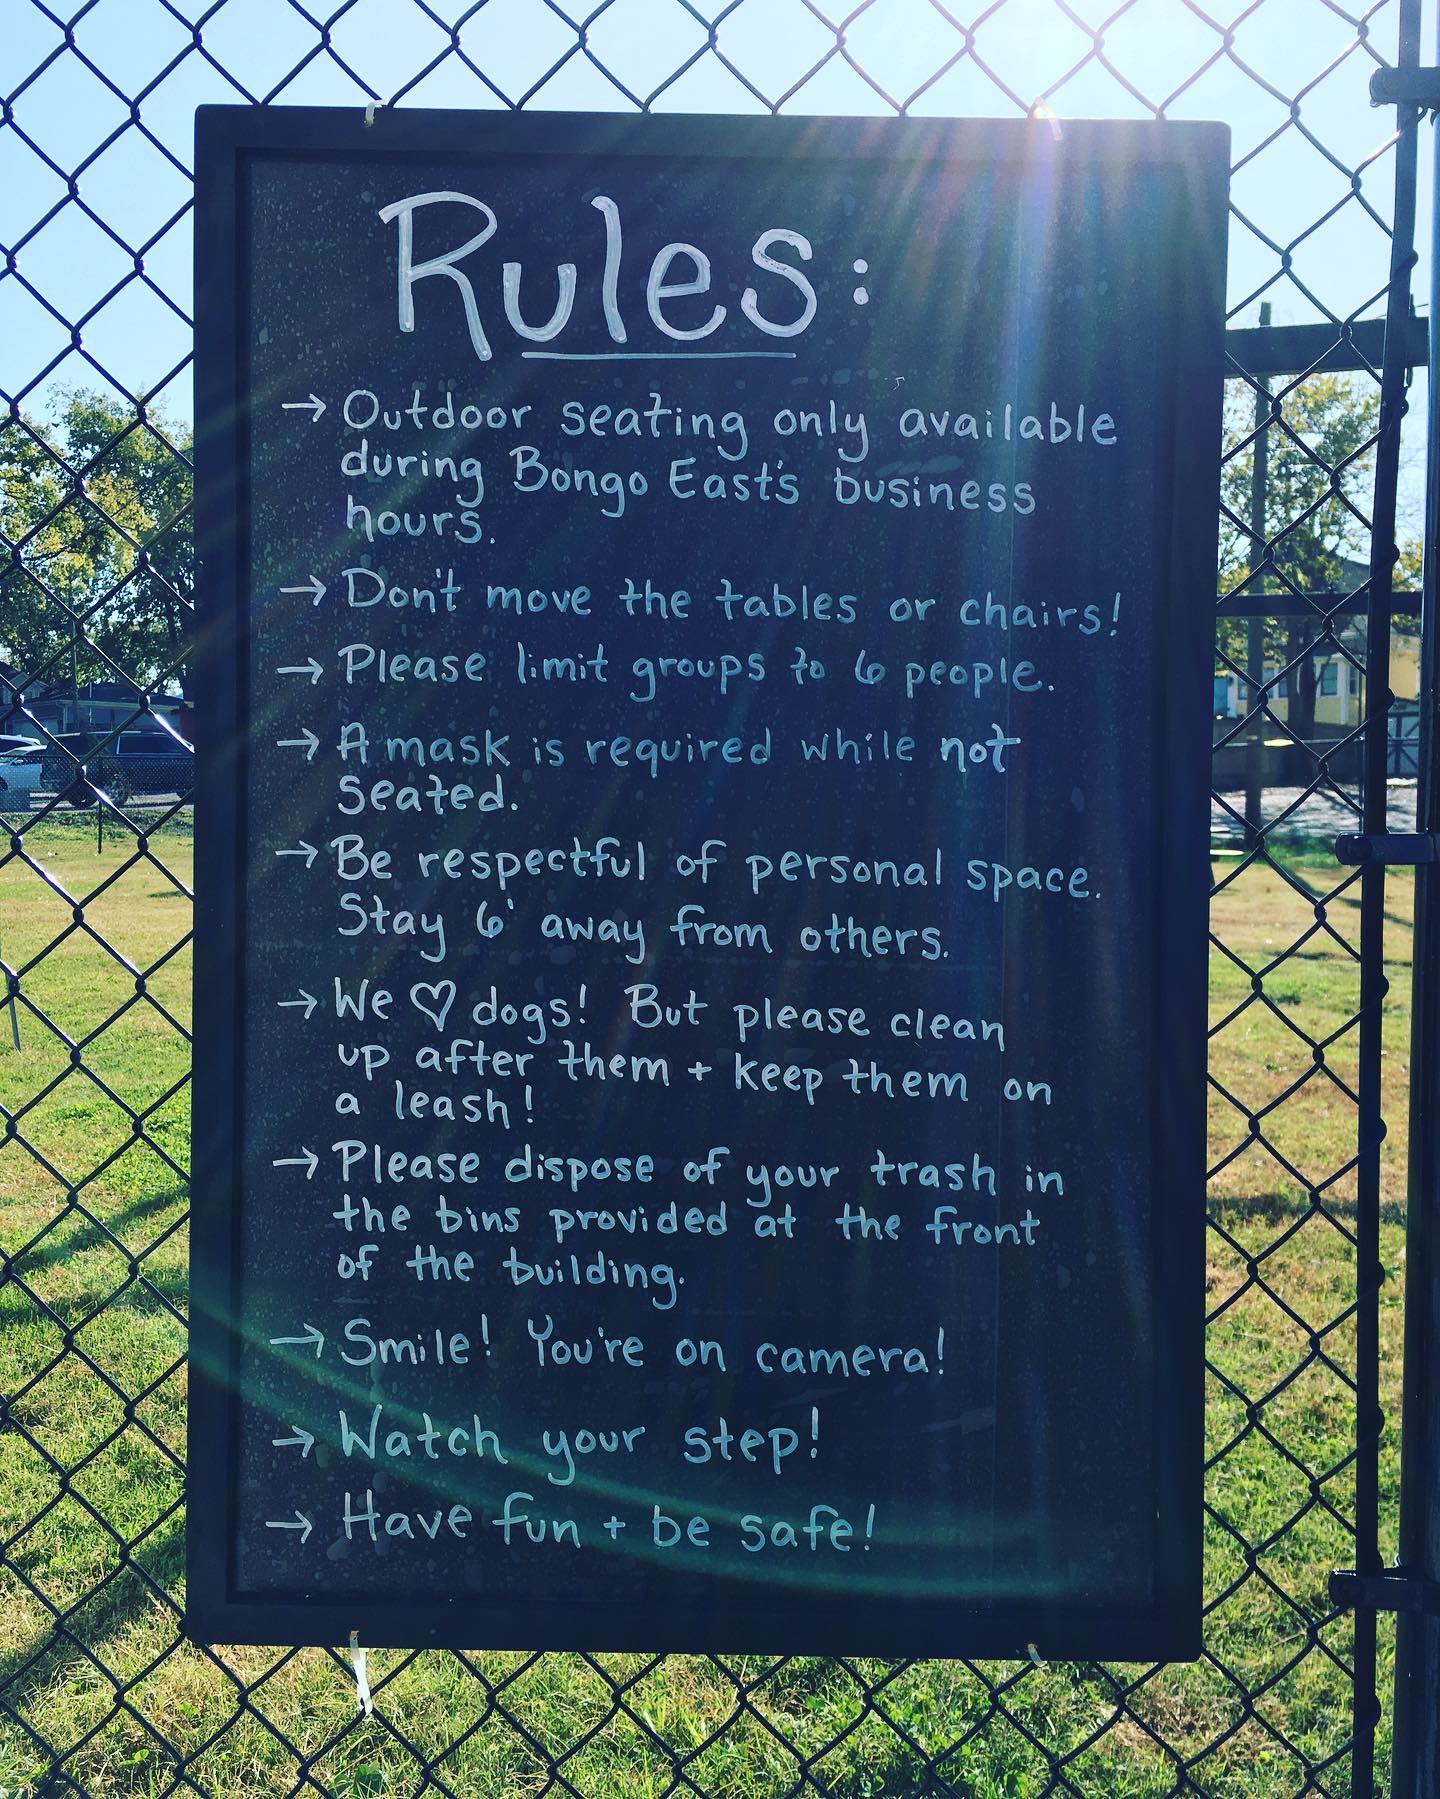 Rules:
→ Outdoor seating only available
during Bongo East's business
hours.
→ Don't move the tables or chairs!
→ Please limit groups to 6 people.
→ A mask is required while not
seated.
→ Be respectful of personal space.
Stay 6' away from others.
→ We ♡ dogs! But please clean
up after them + keep them on
a leash!
→ Please dispose of your trash in
the bins provided at the front
of the building.
→ Smile! You're on camera!
→ Watch your step!
→ Have fun + be safe!